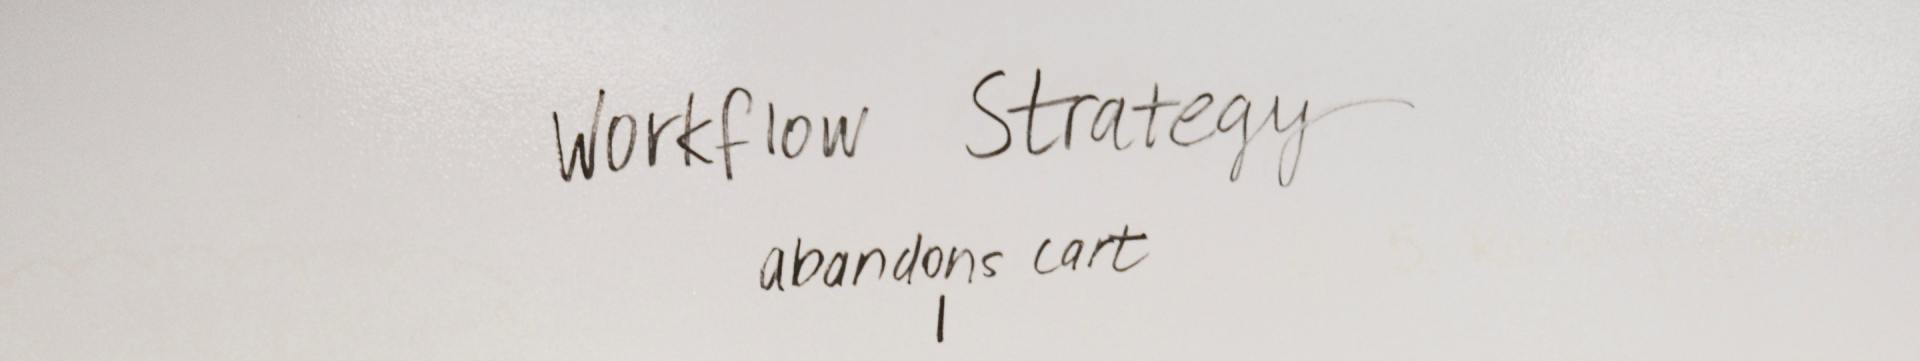 Workflow Strategy
abandons cart